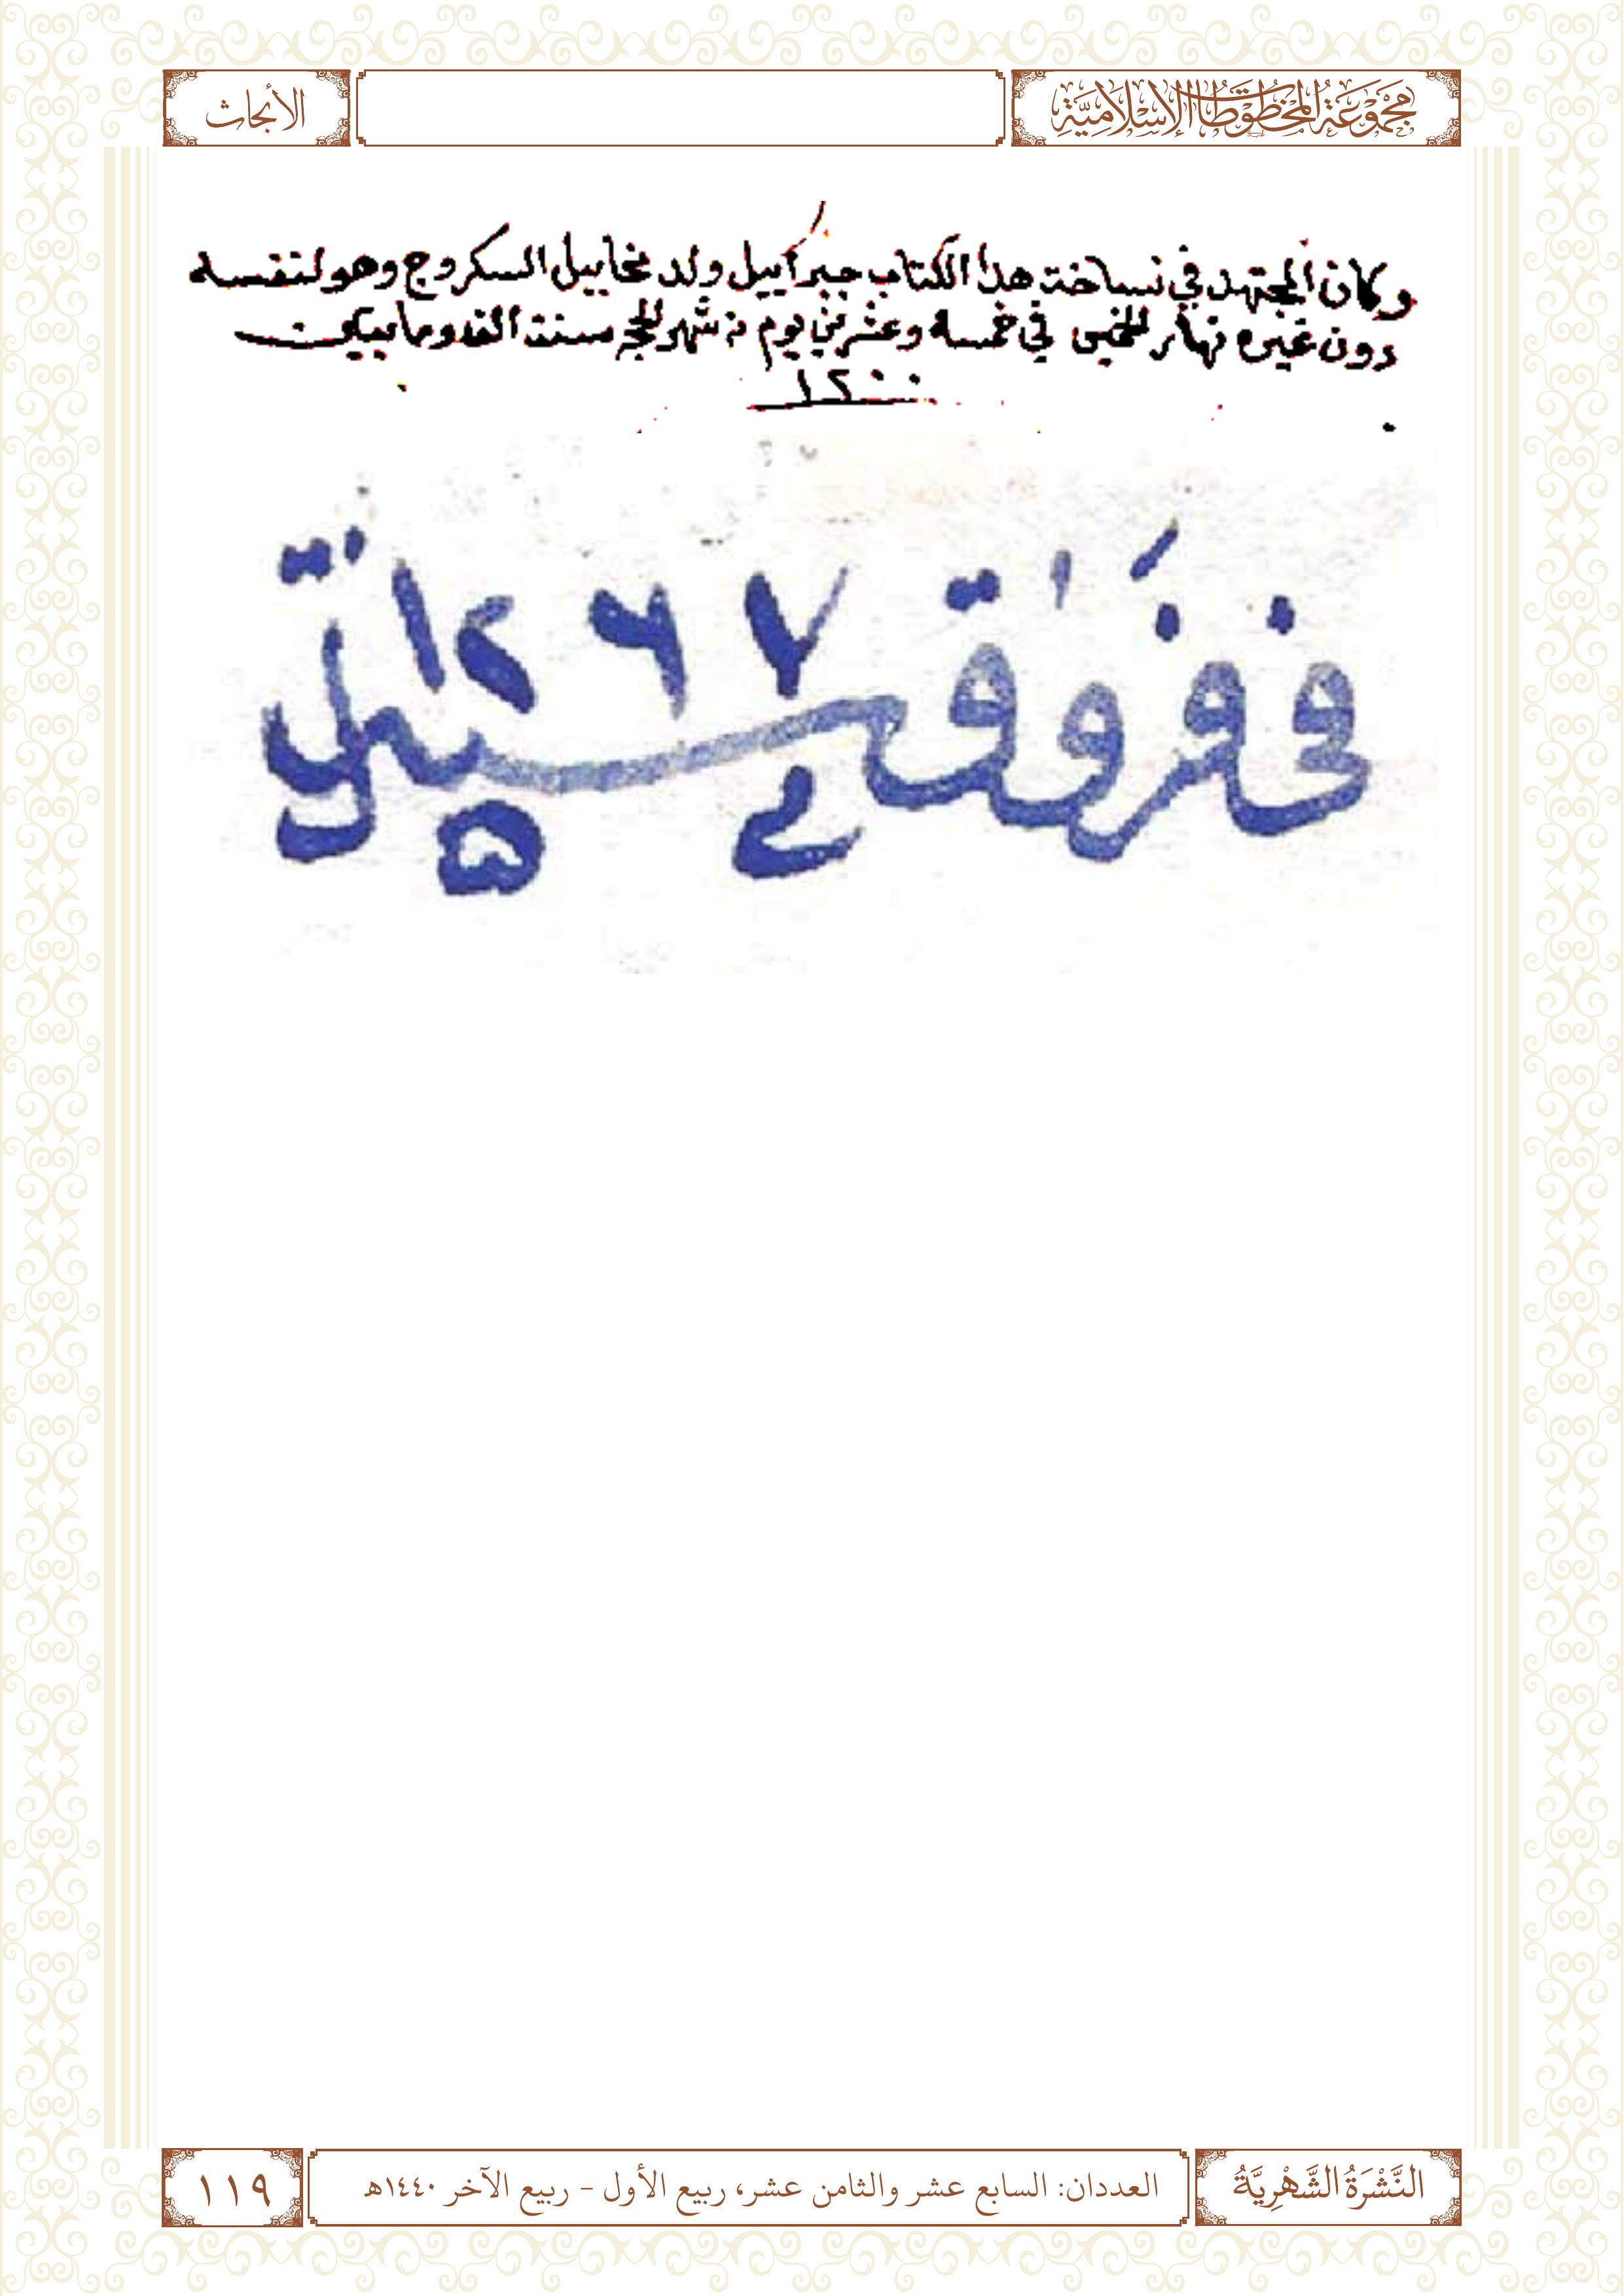 مَجْمُوعَةُ المَخْطُوطَاتِ الإِسْلَامِيَّةِ
الأبحاث
وكان المجتهد في نساخة هذا الكتاب جبرآييل ولد مخاييل السكروج وهو لنفسه
دون غيره نهار الخميس في خمسة وعشرين يوم من شهر الحجه سنة الف وماييتين
١٢٠٠
١٢٦٧
النَّشْرَةُ الشَّهْرِيَّةُ
العددان: السابع عشر والثامن عشر، ربيع الأول - ربيع الآخر ١٤٤٠هـ
١١٩